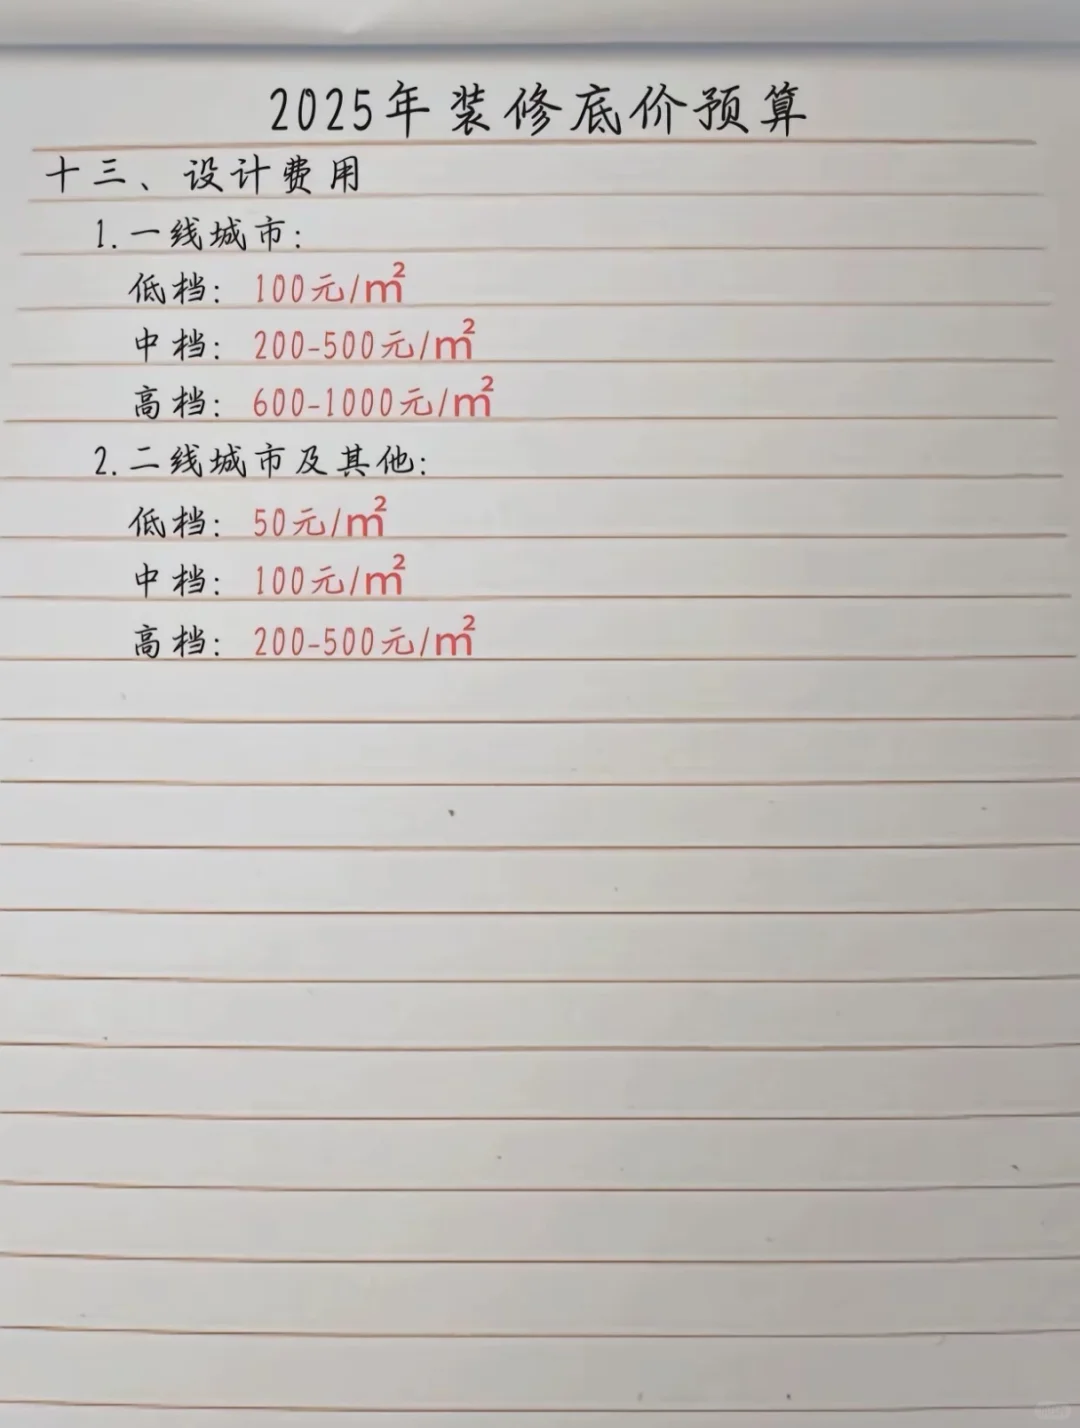 2025年装修底价预算
十三、设计费用
1.一线城市:
低档: 100元/㎡
中档: 200-500元/㎡
高档: 600-1000元/㎡
2.二线城市及其他:
低档: 50元/㎡
中档: 100元/㎡
高档: 200-500元/㎡